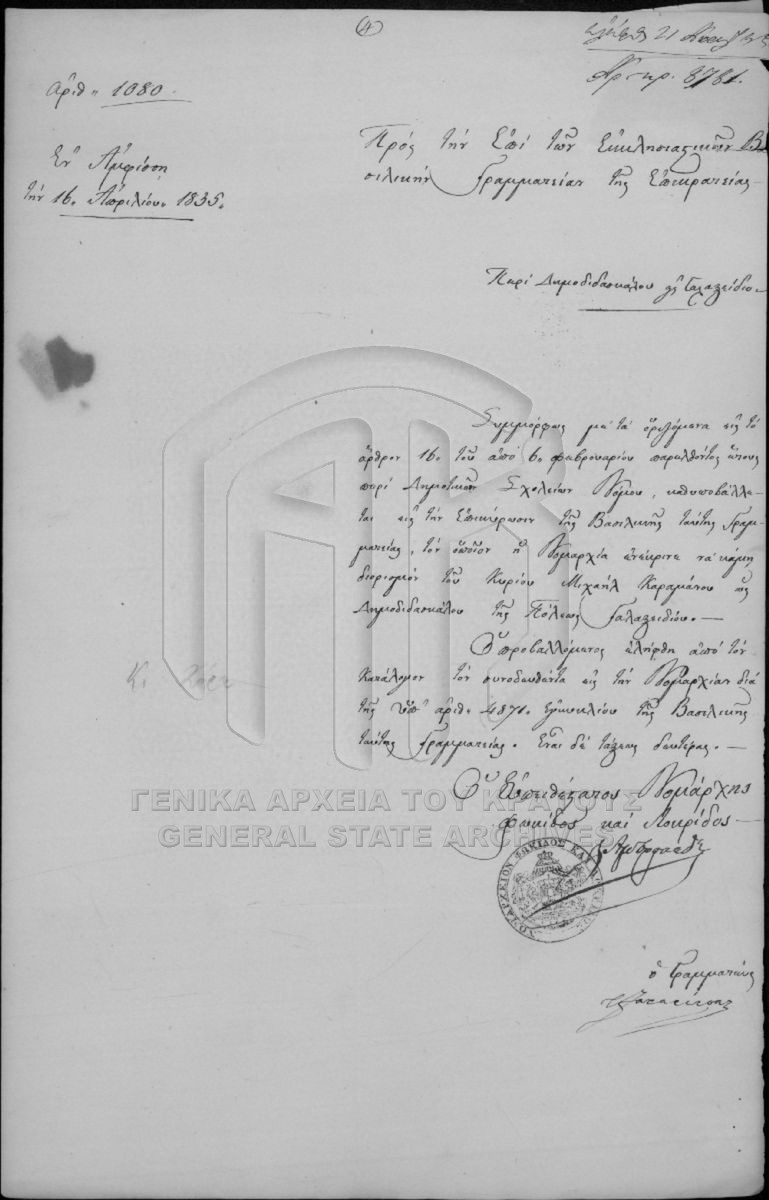 (4)
21
Αρ. πρ. 8781.
Αριθ. 1080.
Ἐν Ἀμφίσσῃ
τὴν 16. Ἀπριλίου. 1835.
Πρὸς τὴν Ἐπὶ τῶν Ἐκκλησιαστικῶν Βα
σιλικὴν Γραμματείαν τῆς Ἐπικρατείας.
Περὶ Δημοδιδασκάλου εἰς Γαλαξείδιον
Συμμόρφως μὲ τὰ ὁριζόμενα εἰς τὸ
ἄρθρον 16. τοῦ ἀπὸ 6. φεβρουαρίου παρελθόντος ἔτους
περὶ Δημοτικῶν Σχολείων Νόμου, καθυποβάλλε-
ται εἰς τὴν Ἐπικύρωσιν τῆς Βασιλικῆς ταύτης Γραμ-
ματείας, τὸν ὁποῖον ἡ Νομαρχία ἐνέκρινε νὰ κάμῃ
διορισμὸν τοῦ Κυρίου Μιχαὴλ Καραμάνου ὡς
Δημοδιδασκάλου τῆς Πόλεως Γαλαξειδίου. —
Ὁ προβαλλόμενος ἐλήφθη ἀπὸ τὸν
Κατάλογον τὸν συνοδευθέντα εἰς τὴν Νομαρχίαν διὰ
τῆς ὑπ' ἀριθ. 4871. Ἐγκυκλίου τῆς Βασιλικῆς
ταύτης Γραμματείας. Εἶναι δὲ τάξεως δευτέρας. —
Ὁ Εὐπειθέστατος Νομάρχης
Φωκίδος καὶ Λοκρίδος
ΝΟΜΑΡΧΕΙΟΝ ΦΩΚΙΔΟΣ ΚΑΙ ΛΟΚΡΙΔΟΣ
ὁ Γραμματεὺς
ΓΕΝΙΚΑ ΑΡΧΕΙΑ ΤΟΥ ΚΡΑΤΟΥΣ
GENERAL STATE ARCHIVES